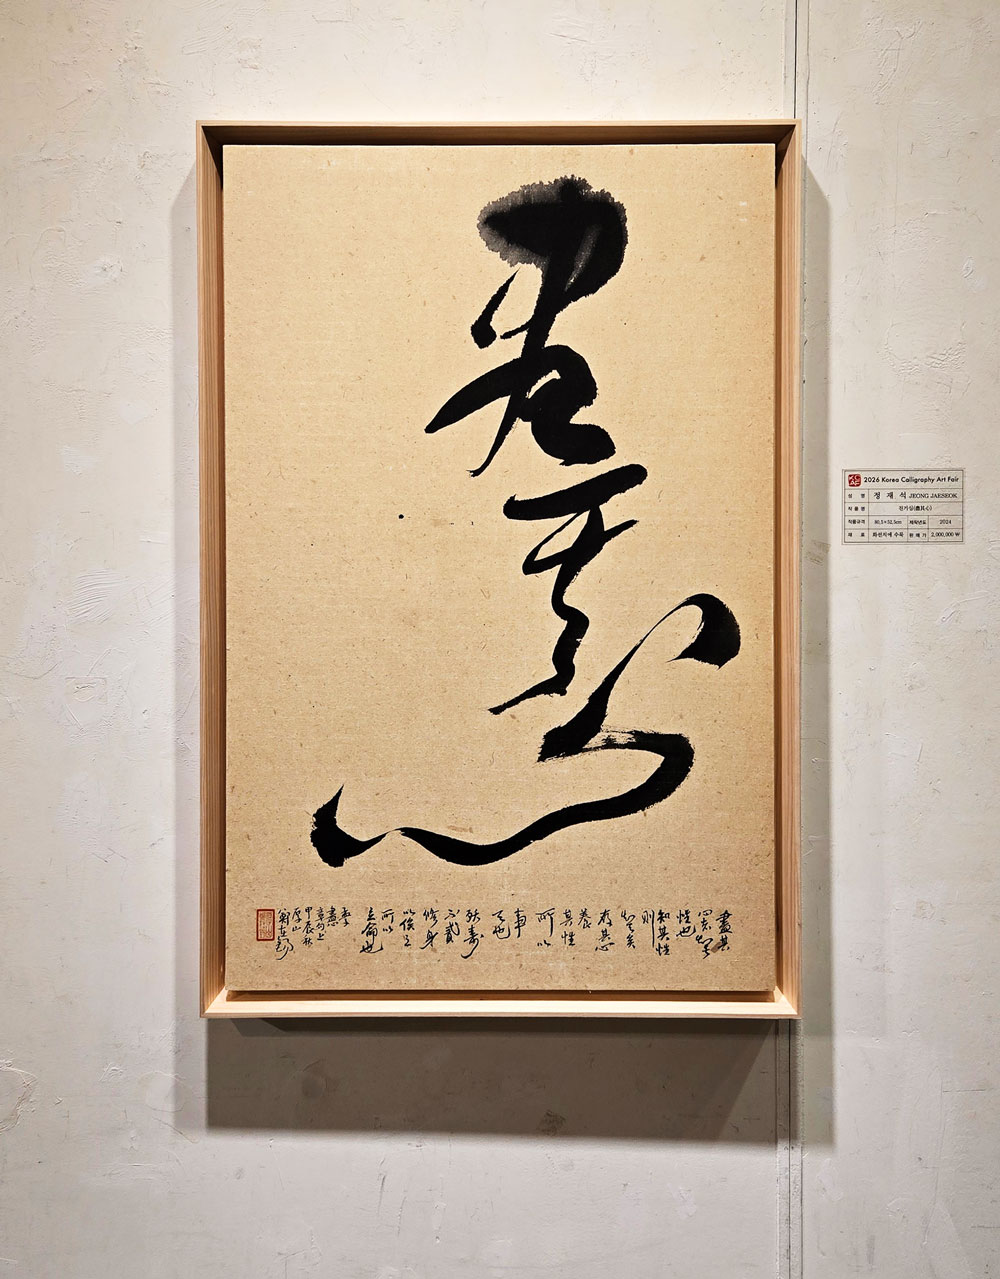 盡其心
盡其
心者知其
性也
知其性
則
知天矣
存其心
養
其性
所以
事
天也
殀壽
不貳
修身
以俟之
所以
立命也
孟子
盡心
章句上
甲辰秋
厚山
鄭在錫
2026 Korea Calligraphy Art Fair
성 명 정 재 석 JEONG JAESEOK
작 품 명 진기심(盡其心)
작품규격 80.5×52.5cm 제작년도 2024
재 료 화선지에 수묵 판 매 가 2,000,000 ₩